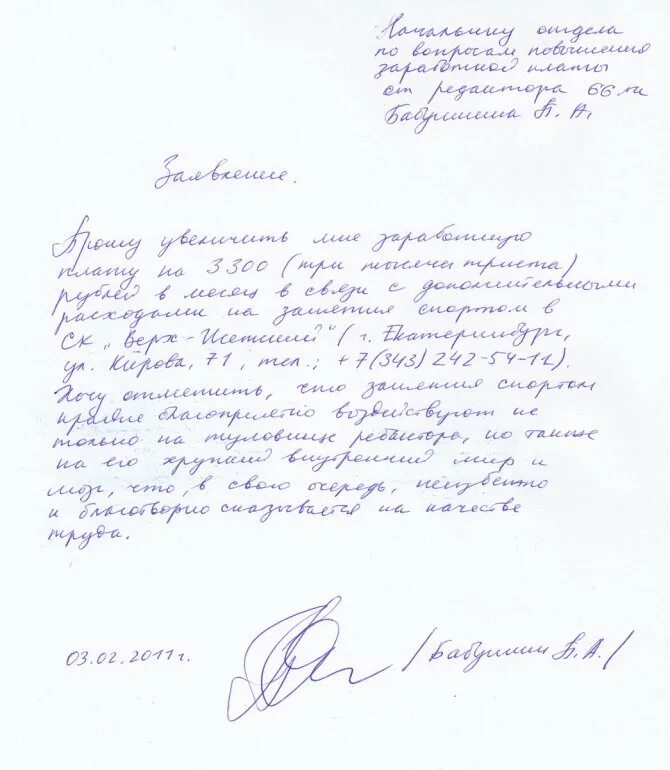 Начальнику отдела
по вопросам повышения
заработной платы
от редактора 66.ru
Бабушкина П. А.
Заявление.
Прошу увеличить мне заработную
плату на 3300 (три тысячи триста)
рублей в месяц в связи с дополнительными
расходами на занятия спортом в
СК „Верх-Исетский" (г. Екатеринбург,
ул. Кирова, 71, тел.: +7(343) 242-54-12).
Хочу отметить, что занятия спортом
крайне благоприятно воздействуют не
только на туловище редактора, но также
на его хрупкий внутренний мир и
мозг, что, в свою очередь, неизбежно
и благотворно сказывается на качестве
труда.
03.02.2011г. /Бабушкин П. А./